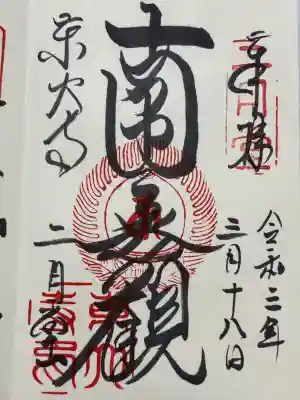 奉拝
令和二年
三月十八日
南無観
東大寺
二月堂